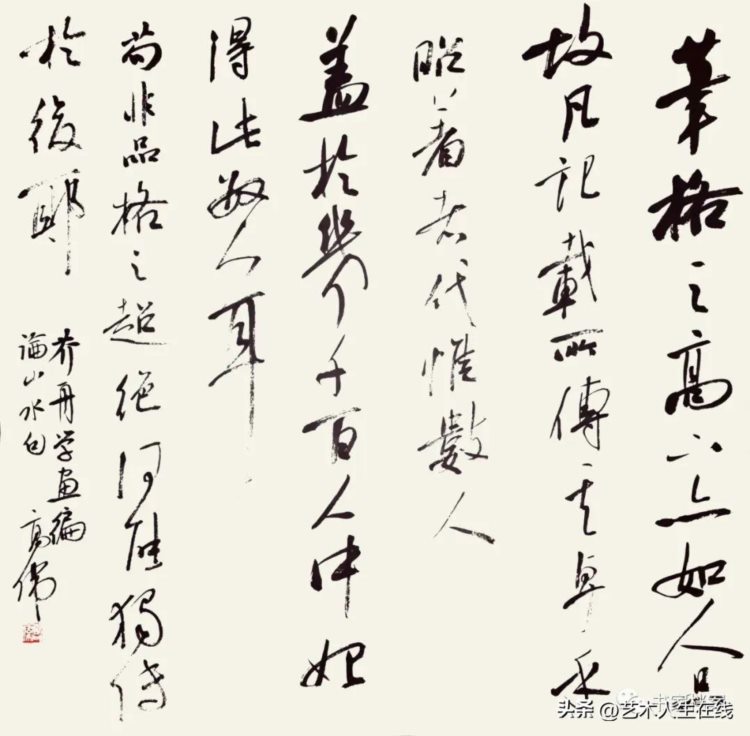 筆格之高下亦如人品
故凡記載所傳其卓
昭著者代惟數人
蓋於幾千百人中始
得此数人耳
苟非品格之超绝何能独传
於後耶
芥舟学画编
论山水句 高伟
头条 @艺术人生在线